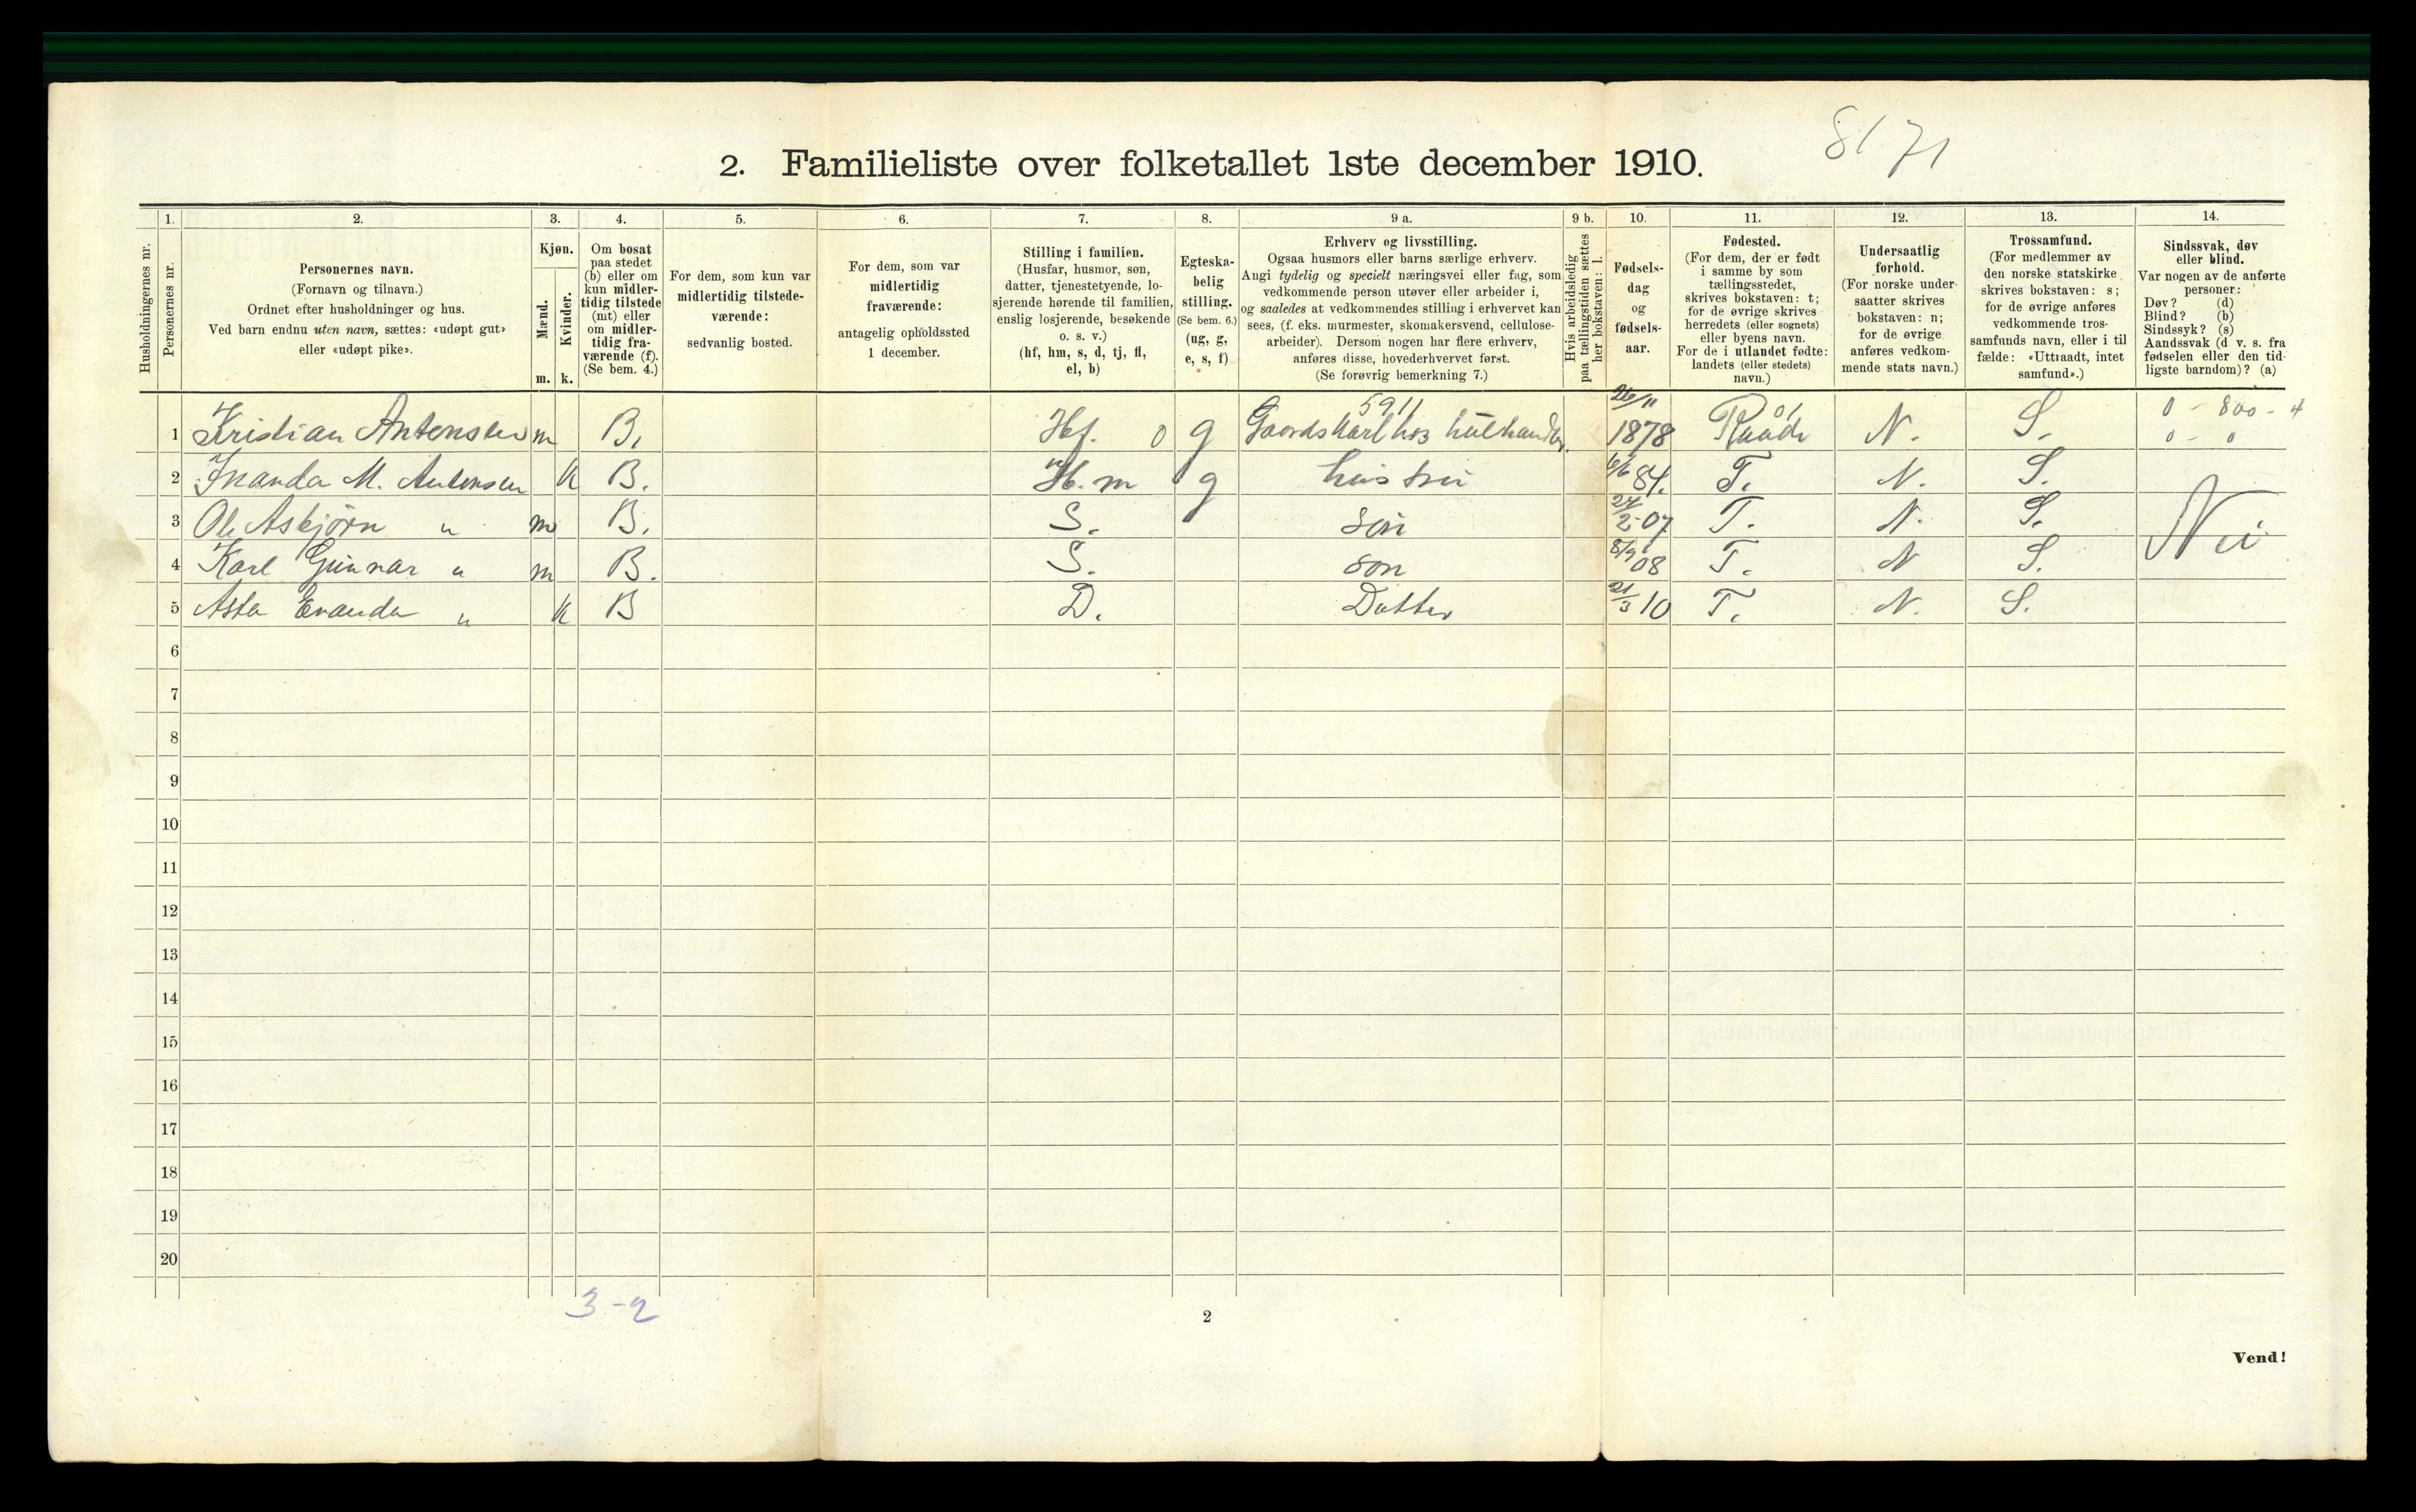 8171
2. Familieliste over folketallet 1ste december 1910.
Husholdningernes nr.
1.
Personernes nr.
2.
Personernes navn.
(Fornavn og tilnavn.)
Ordnet efter husholdninger og hus.
Ved barn endnu uten navn, sættes: «udøpt gut»
eller «udøpt pike».
3.
Kjøn.
Mænd.
Kvinder.
m. k.
4.
Om bosat
paa stedet
(b) eller om
kun midler-
tidig tilstede
(mt) eller
om midler-
tidig fra-
værende (f).
(Se bem. 4.)
5.
For dem, som kun var
midlertidig tilstede-
værende:
sedvanlig bosted.
6.
For dem, som var
midlertidig
fraværende:
antagelig opholdssted
1 december.
7.
Stilling i familien.
(Husfar, husmor, søn,
datter, tjenestetyende, lo-
sjerende hørende til familien,
enslig losjerende, besøkende
o. s. v.)
(hf, hm, s, d, tj, fl,
el, b)
8.
Egteska-
belig
stilling.
(Se bem. 6.)
(ug, g,
e, s, f)
9 a.
Erhverv og livsstilling.
Ogsaa husmors eller barns særlige erhverv.
Angi tydelig og specielt næringsvei eller fag, som
vedkommende person utøver eller arbeider i,
og saaledes at vedkommendes stilling i erhvervet kan
sees, (f. eks. murmester, skomakersvend, cellulose-
arbeider). Dersom nogen har flere erhverv,
anføres disse, hovederhvervet først.
(Se forøvrig bemerkning 7.)
9 b.
Hvis arbeidsledig
paa tællingstiden sættes
her bokstaven: l.
10.
Fødsels-
dag
og
fødsels-
aar.
11.
Fødested.
(For dem, der er født
i samme by som
tællingsstedet,
skrives bokstaven: t;
for de øvrige skrives
herredets (eller sognets)
eller byens navn.
For de i utlandet fødte:
landets (eller stedets)
navn.)
12.
Undersaatlig
forhold.
(For norske under-
saatter skrives
bokstaven: n;
for de øvrige
anføres vedkom-
mende stats navn.)
13.
Trossamfund.
(For medlemmer av
den norske statskirke
skrives bokstaven: s;
for de øvrige anføres
vedkommende tros-
samfunds navn, eller i til
fælde: «Uttraadt, intet
samfund».)
14.
Sindssvak, døv
eller blind.
Var nogen av de anførte
personer:
Døv? (d)
Blind? (b)
Sindssyk? (s)
Aandssvak (d v. s. fra
fødselen eller den tid-
ligste barndom)? (a)
5911 26/11 01 0 - 800 - 4
1 Kristian Antensen m B. Hf. 0 g Gaardskarl hos 1878 Raade N. S. 0 - 0
2 M. Antensen k B. H.m g hustru 6/6 84. T. N. S.
3 Ole Asbjørn " m B. S. Søn 24/2-07 T. N. S. Nei
4 Karl Gunnar " m B. S. Søn 8/9 08 T. N S.
5 Asta Evanda " k B D. Datter 21/3 10 T. N. S.
6
7
8
9
10
11
12
13
14
15
16
17
18
19
20
3-2
2
Vend!